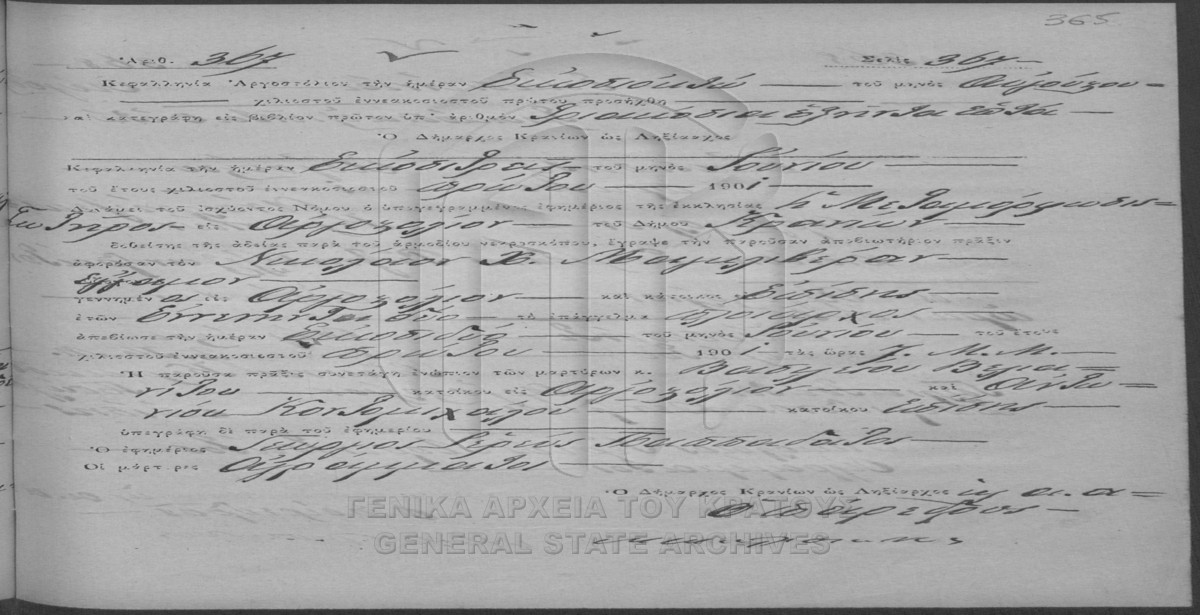 365
Ἀριθ. 367 Σελὶς 367
Κεφαλληνία Ἀργοστόλιον τὴν ἡμέραν Εἰκοστὴν ὀκτὼ τοῦ μηνὸς Αὐγούστου
χιλιοστοῦ ἐννεακοσιοστοῦ πρώτου προσήχθη
καὶ κατεγράφη εἰς βιβλίον πρῶτον ὑπ' ἀριθμὸν Τριακόσια ἑξῆντα ἑπτὰ
Ὁ Δήμαρχος Κρανίων ὡς Ληξίαρχος
Κεφαλληνία τὴν ἡμέραν Εἰκοσιτρεῖς τοῦ μηνὸς Ἰουνίου
τοῦ ἔτους χιλιοστοῦ ἐννεακοσιοστοῦ πρώτου 1901
Δυνάμει τοῦ ἰσχύοντος Νόμου ὁ ὑπογεγραμμένος ἐφημέριος τῆς ἐκκλησίας ἡ Μεταμόρφωσις
Σωτῆρος εἰς Ἀργοστόλιον τοῦ Δήμου Κρανίων
δοθείσης τῆς ἀδείας παρὰ τοῦ ἁρμοδίου νεκροσκόπου, ἔγραψε τὴν παροῦσαν ἀποβιωτήριον πρᾶξιν
ἀφορῶσαν τὸν Νικόλαον Χ.
ἔγγαμον
γεννημένος εἰς Ἀργοστόλιον καὶ κάτοικος Ἐπίσης
ἐτῶν Ἐννενῆντα δύο τὸ ἐπάγγελμα πλοίαρχος
ἀπεβίωσε τὴν ἡμέραν Εἰκοσιδύο τοῦ μηνὸς Ἰουνίου τοῦ ἔτους
χιλιοστοῦ ἐννεακοσιοστοῦ πρώτου 1901 τὰς ὥρας 7. Μ. Μ.
Ἡ παροῦσα πρᾶξις συνετάγη ἐνώπιον τῶν μαρτύρων κ. Βασιλείου
κατοίκου εἰς Ἀργοστόλιον καὶ Ἀντω=
νίου Κοντομιχάλου κατοίκου Ἐπίσης
ὑπεγράφη δὲ παρὰ τοῦ ἐφημερίου
Ὁ ἐφημέριος Γεώργιος Ἱερεὺς Παππαδάτος
Οἱ μάρτυρες Ἀγράμματοι
Ὁ Δήμαρχος Κρανίων ὡς Ληξίαρχος κ. α. α=
Ὁ Πάρεδρος
ΓΕΝΙΚΑ ΑΡΧΕΙΑ ΤΟΥ ΚΡΑΤΟΥΣ
GENERAL STATE ARCHIVES